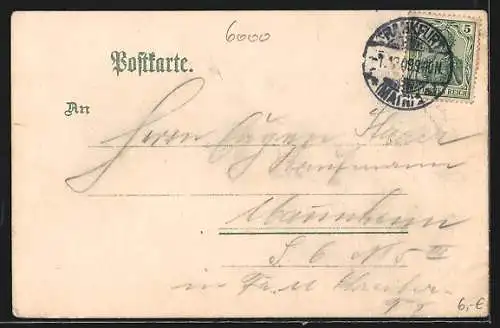 6000
5
FRANKFURT
MAIN
REICH
Postkarte.
An
Herrn Eugen
Kaufmann
Mannheim
S 6 No 5 III
in Fr.
6,-€